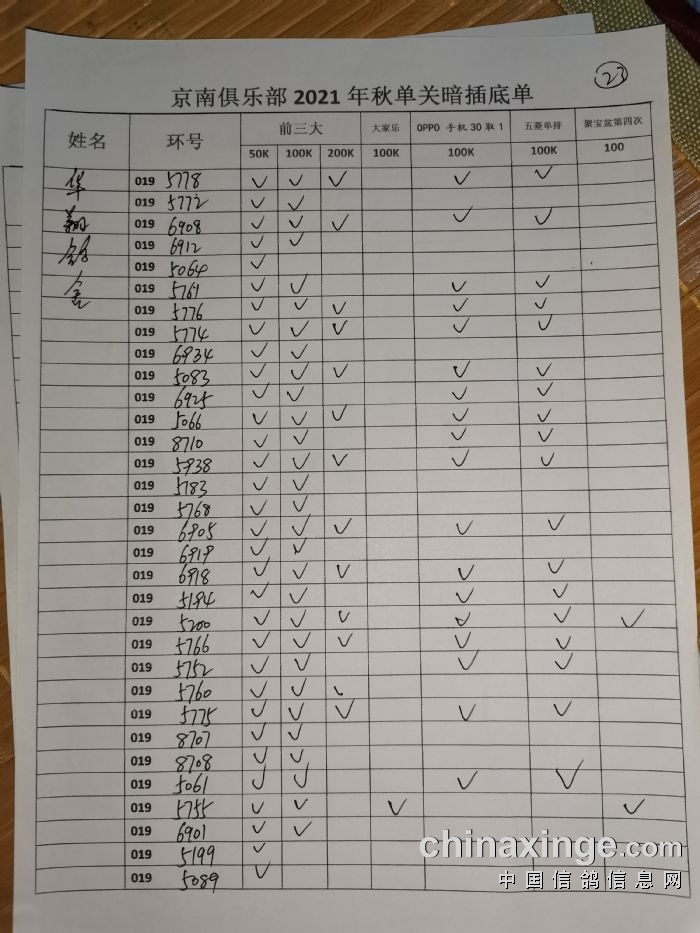 23
京南俱乐部 2021 年秋单关暗插底单
姓名 环号 前三大 大家乐 OPPO 手机 30 取 1 五菱单排 聚宝盆第四次
50K 100K 200K 100K 100K 100K 100
华 019 5778 ✓ ✓ ✓ ✓ ✓
019 5772 ✓ ✓
翔 019 6908 ✓ ✓ ✓ ✓ ✓
鸽 019 6912 ✓ ✓
019 5064 ✓
舍 019 5761 ✓ ✓ ✓ ✓
019 5776 ✓ ✓ ✓ ✓ ✓
019 5774 ✓ ✓ ✓ ✓ ✓
019 6934 ✓ ✓
019 5083 ✓ ✓ ✓ ✓ ✓
019 6925 ✓ ✓ ✓ ✓
019 5066 ✓ ✓ ✓ ✓ ✓
019 8710 ✓ ✓ ✓ ✓
019 5938 ✓ ✓ ✓ ✓ ✓
019 5183 ✓ ✓
019 5768 ✓ ✓
019 6905 ✓ ✓ ✓ ✓ ✓
019 6919 ✓ ✓
019 6918 ✓ ✓ ✓ ✓ ✓
019 5194 ✓ ✓ ✓ ✓
019 5200 ✓ ✓ ✓ ✓ ✓ ✓
019 5766 ✓ ✓ ✓ ✓ ✓
019 5752 ✓ ✓ ✓ ✓
019 5760 ✓ ✓ ✓
019 5775 ✓ ✓ ✓ ✓ ✓
019 8707 ✓ ✓
019 8708 ✓ ✓
019 5061 ✓ ✓ ✓ ✓
019 5755 ✓ ✓ ✓ ✓
019 6901 ✓ ✓
019 5199 ✓
019 5089 ✓
chinaxinge.com
中国信鸽信息网